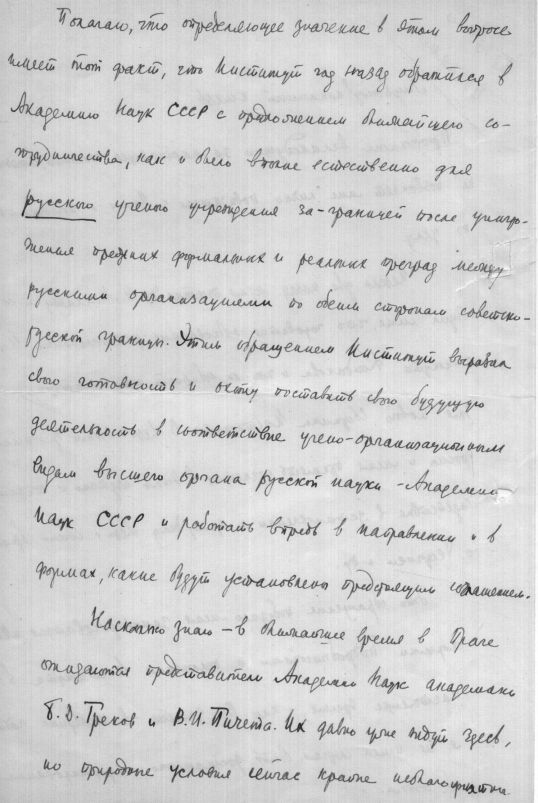 Полагаю, что определяющее значение в этом вопросе
имеет тот факт, что Институт год назад обратился в
Академию Наук СССР с предложением ближайшего со-
трудничества, как и было вполне естественно для
русского ученого учреждения за-границей после уничто-
жения прежних формальных и реальных преград между
русскими организациями по обеим сторонам советско-
русской границы. Этим обращением Институт выразил
свою готовность и охоту поставить свою будущую
деятельность в соответствие учено-организационным
видам высшего органа русской науки - Академии
Наук СССР и работать впредь в направлении и в
формах, какие будут установлены предстоящим соглашением.
Насколько знаю - в ближайшее время в Праге
ожидаются представители Академии Наук академики
Б. Д. Греков и В. И. Пичета. Их давно уже ждут здесь,
но природные условия сейчас крайне неблагоприятны